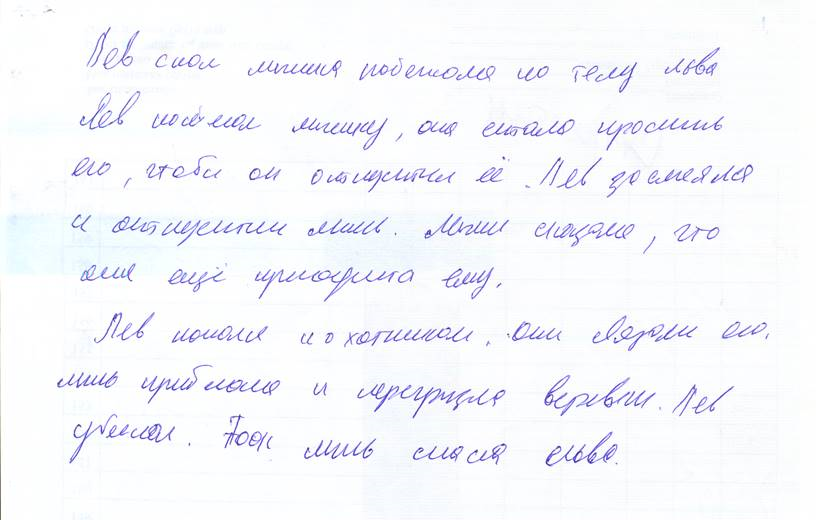 Лев спал мышка побежала по телу льва
Лев поймал мышку, она стала просить
его, чтобы он отпустил её. Лев засмеялся
и отпустил мышь. Мышь сказала, что
она ещё пригодится ему.
Лев попался охотникам. Они связали его.
мышь прибежала и перегрызла веревки. Лев
убежал. Так мышь спасла льва.